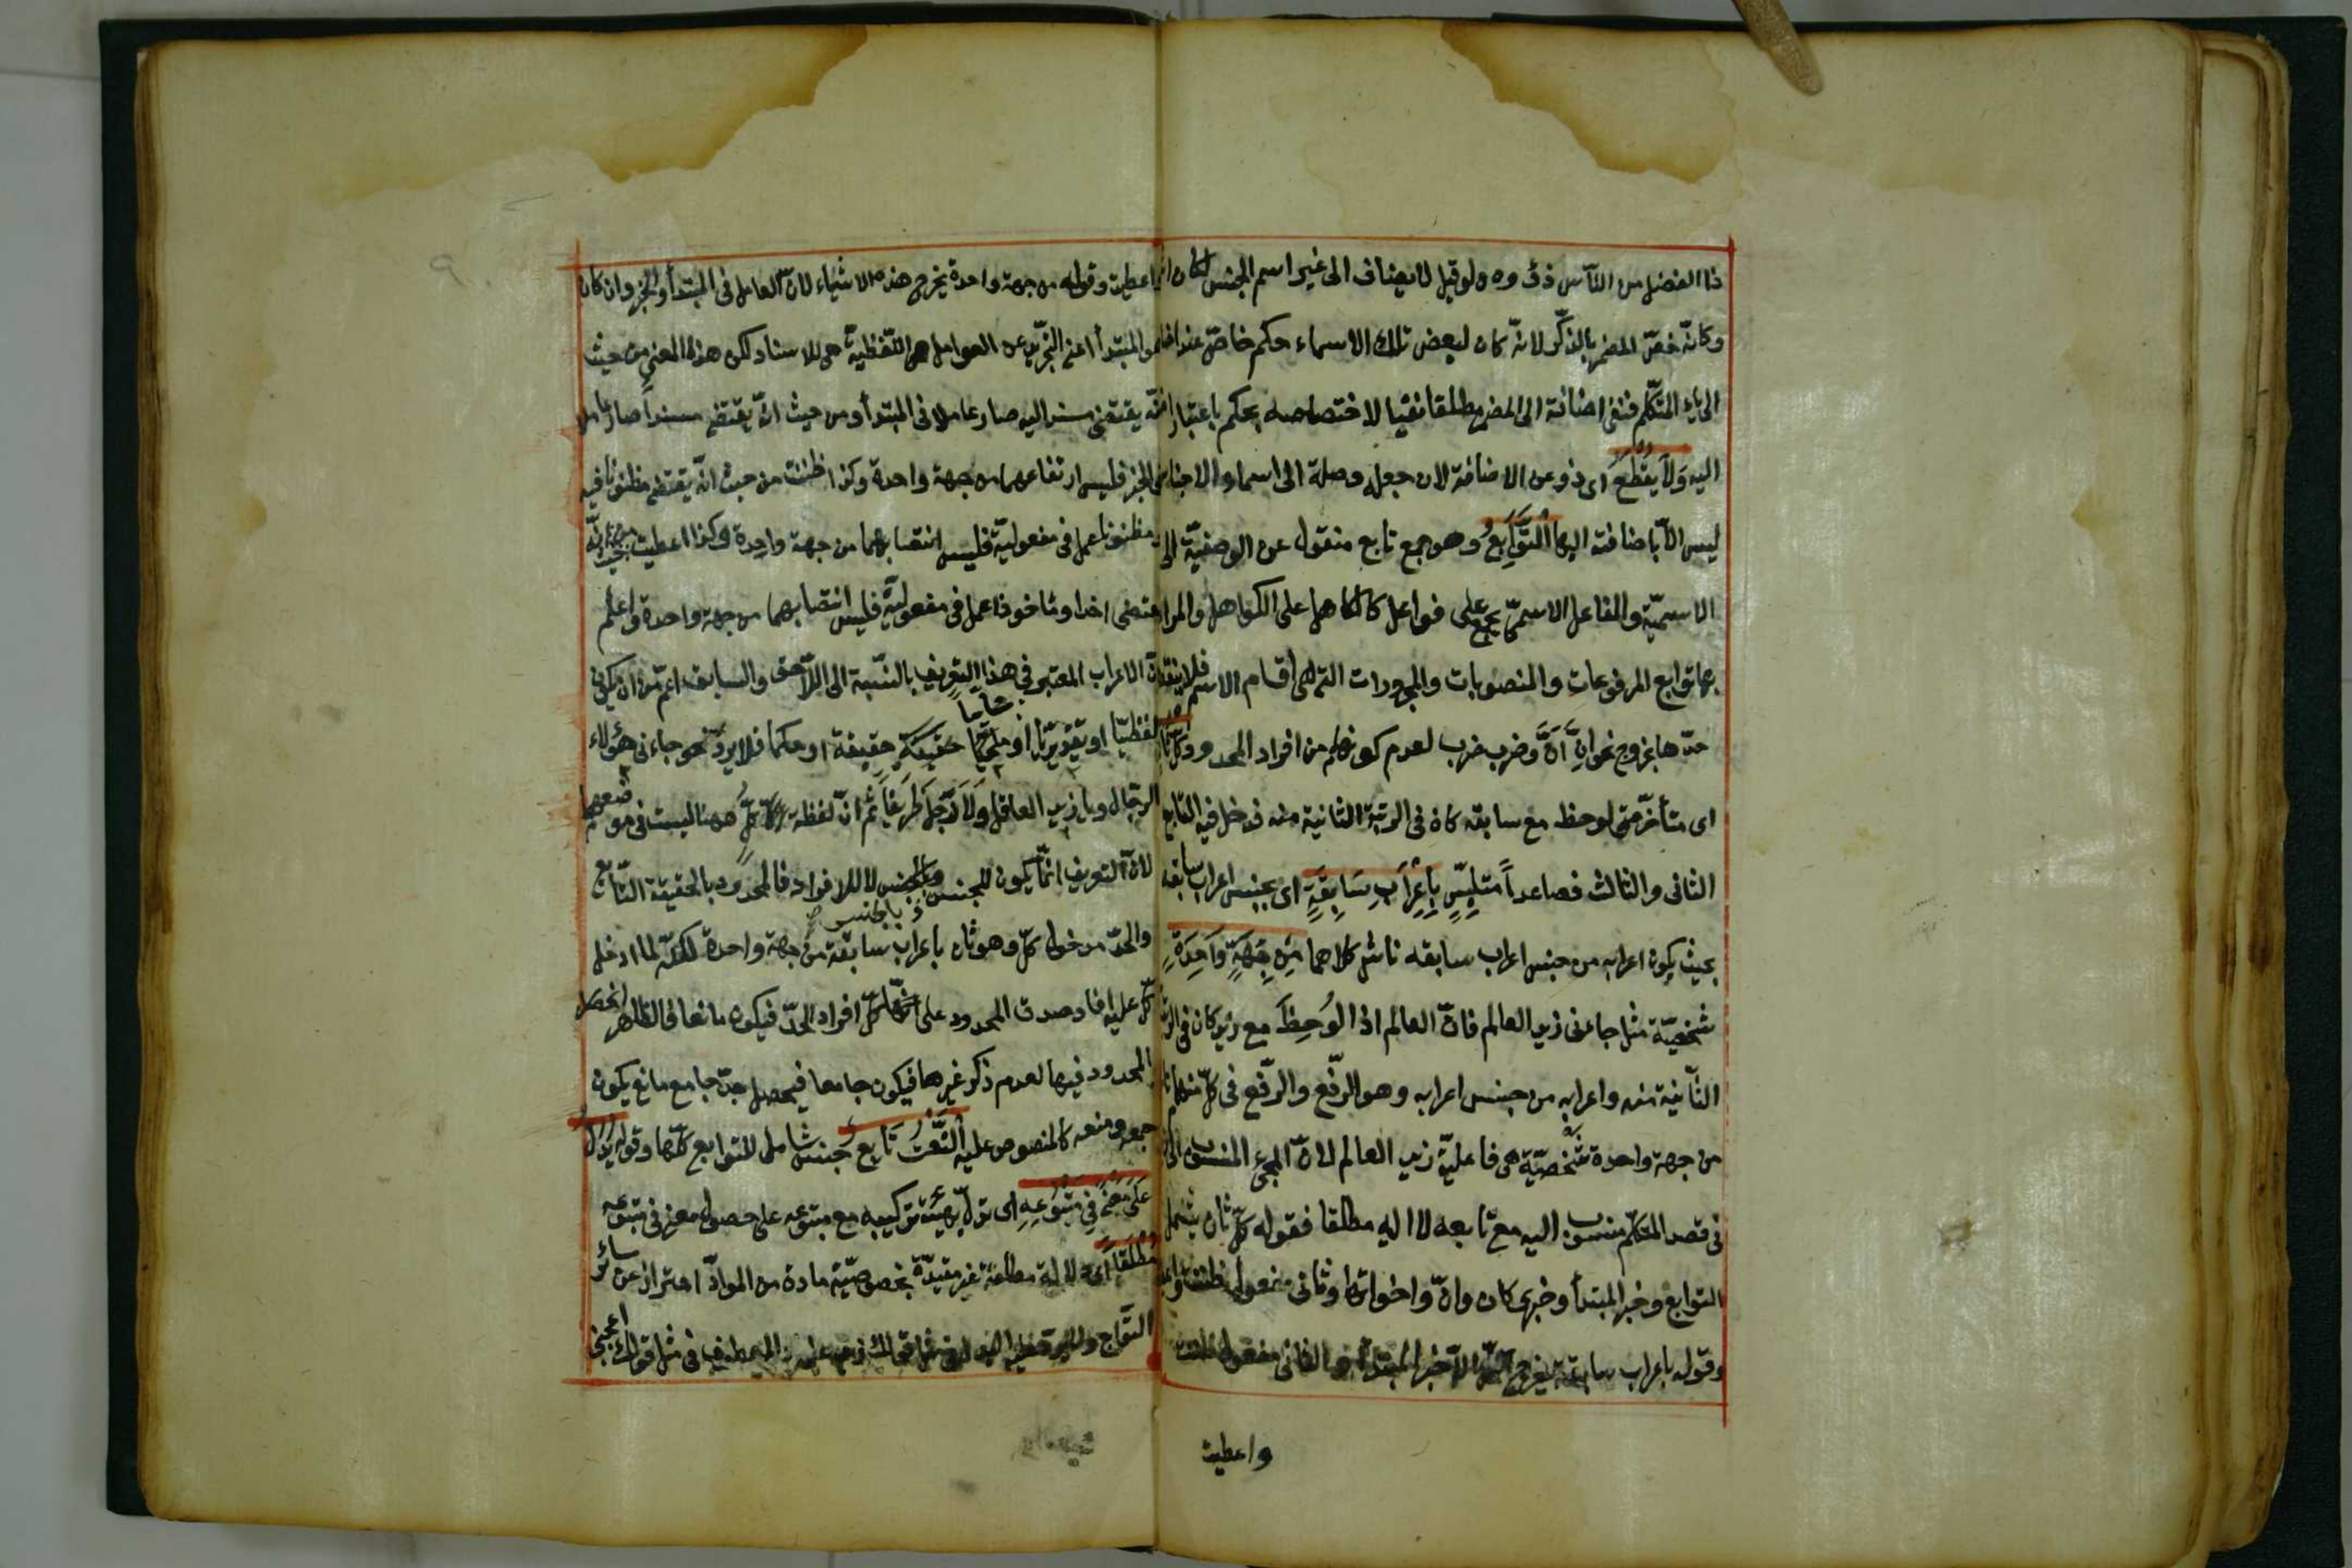 ذا الفضل من الناس ذووه ولو قيل لا يضاف الى غير اسم الجنس لكان
وكانه خص المضمر بالذكر لانه كان لبعض تلك الاسماء حكم خاص عند اضا
الى ياء المتكلم فنفى اضافته الى المضمر مطلقا نفيا لاختصاصه بحكم باعتبار
اليه وَلَا يُقْطَعُ اى ذو عن الاضافة لان جعله وصلة الى اسماء الاجناس
ليس الا باضافته اليها اَلتَّوَابِعُ وهو جمع تابع منقول عن الوصفية الى
الاسمية والفاعل الاسمى يجمع على فواعل كالكاهل على الكواهل والمراد
بها توابع المرفوعات والمنصوبات والمجرورات التى هى اقسام الاسم فلا ينتقض
حدها بخروج نحو ان ان وضرب ضرب لعدم كونهما من افراد المحدود كُلُّ ثَانٍ
اى متأخر متى لوحظ مع سابقه كان فى الرتبة الثانية منه فدخل فيه التابع
الثانى والثالث فصاعداً متلبس بِاِعْرَابِ سَابِقِهِ اى بجنس اعراب سابقه
بحيث يكون اعرابه من جنس اعراب سابقه ناش كلاهما مِنْ جِهَةٍ وَاحِدَةٍ
شخصية مثل جاءنى زيد العالم فان العالم اذا لوحظ مع زيد كان فى الرتبة
الثانية منه واعرابه من جنس اعرابه وهو الرفع والرفع فى كل منهما نا
من جهة واحدة شخصية هى فاعلية زيد العالم لان المجئ المنسوب الى
فى قصد المتكلم منسوب اليه مع تابعه لا اليه مطلقا فقوله كل ثان يشمل
التوابع وخبر المبتدأ وخبرى كان وان واخواتهما وثانى مفعولى ظننت واعطيت
وقوله باعراب سابقه يخرج الكل الا خبر المبتدأ والثانى مفعولى ظننت
واعطيت
اعطيت وقوله من جهة واحدة يخرج هذه الاشياء لان العامل فى المبتدأ والخبر وان كان
هو الابتداء اعنى التجريد عن العوامل اللفظية للاسناد لكن هذا المعنى من حيث
انه يقتضى مسندا اليه صار عاملا فى المبتدأ ومن حيث انه يقتضى مسنداً صار عاملا
فى الخبر فليس ارتفاعهما من جهة واحدة وكذا ظننت من حيث انه يقتضى مظنونا فيه
ومظنونا عمل فى مفعوليه فليس انتصابهما من جهة واحدة وكذا اعطيت من حيث انه
يقتضى اخذا وماخوذا عمل فى مفعوليه فليس انتصابهما من جهة واحدة واعلم
ان الاعراب المعتبر فى هذا التعريف بالنسبة الى اللاحق والسابق اعم من ان يكون
لفظيا او تقديريا او محليا حقيقة او حكما فلا يرد نحو جاءنى هؤلاء
الرجال ويا زيد العاقل ولا رجل ظريفا ثم ان لفظة كل ههنا ليست فى موضعها
لان التعريف انما يكون للجنس وبالجنس لا للافراد فالمحدود بالحقيقة التابع
والحد مدخول كل وهو ثان باعراب سابقه من جهة واحدة لكنه لما ادخل
كل عليه افاد صدق المحدود على كل افراد الحد فيكون مانعا فالظاهر انحصار
المحدود فيها لعدم ذكر غيرها فيكون جامعا فيحصل حد جامع مانع يكون
جمعه ومنعه كالمنصوص عليه اَلنَّعْتُ تَابِعٌ جنس شامل للتوابع كلها وقوله يَدُلُّ
عَلَى مَعْنًى فِى مَتْبُوعِهِ اى يدل بهيئة تركيبه مع متبوعه على حصول معنى فى متبوعه
مُطْلَقًا اى دلالة مطلقة غير مقيدة بخصوصية مادة من المواد احتراز عن سائر
التوابع ولا يرد عليه البدل فى مثل قولك اعجبنى زيد علمه والمعطوف فى مثل قولك اعجبنى